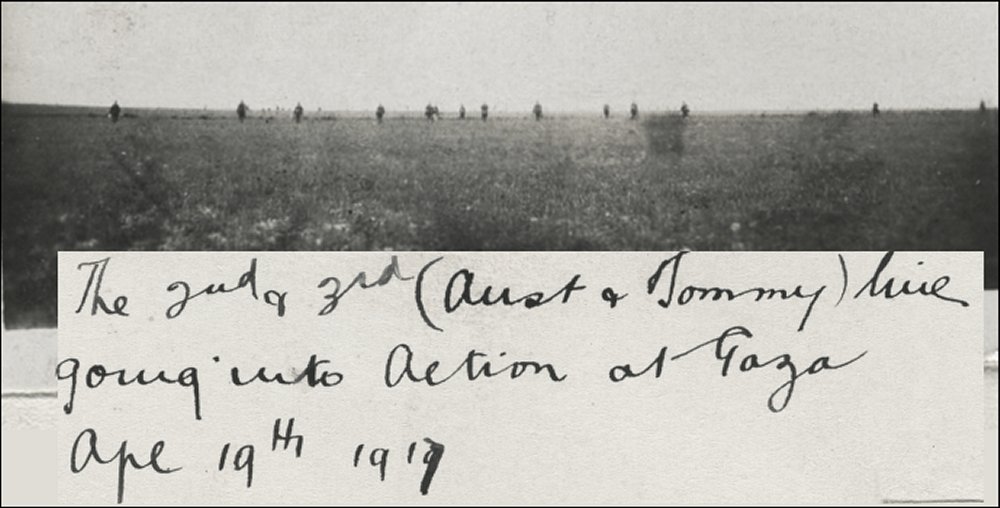 The 2nd & 3rd (Aust & Tommy) line
going into Action at Gaza
Apl 19th 1917